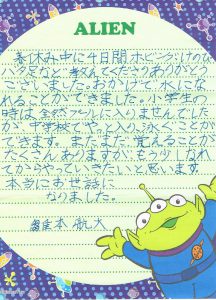 ALIEN
春休み中に4日間ホビークけのび
バタ足など教えてくださりありがとう
ございました。おかげで水にな
れることができました。小学生の
時は全然プールに入りませんでした
が、中学校でやっと入り、泳ぐことが
できます。まだまだ、覚えることが
たくさんありますが、もう少しなれ
てからやっていきたいと思います。
本当にお世話に
なりました。